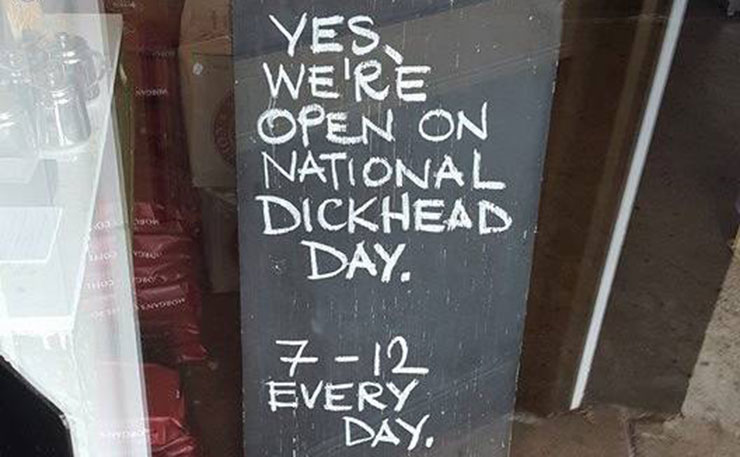 YES,
WE'RE
OPEN ON
NATIONAL
DICKHEAD
DAY.
7-12
EVERY
DAY.